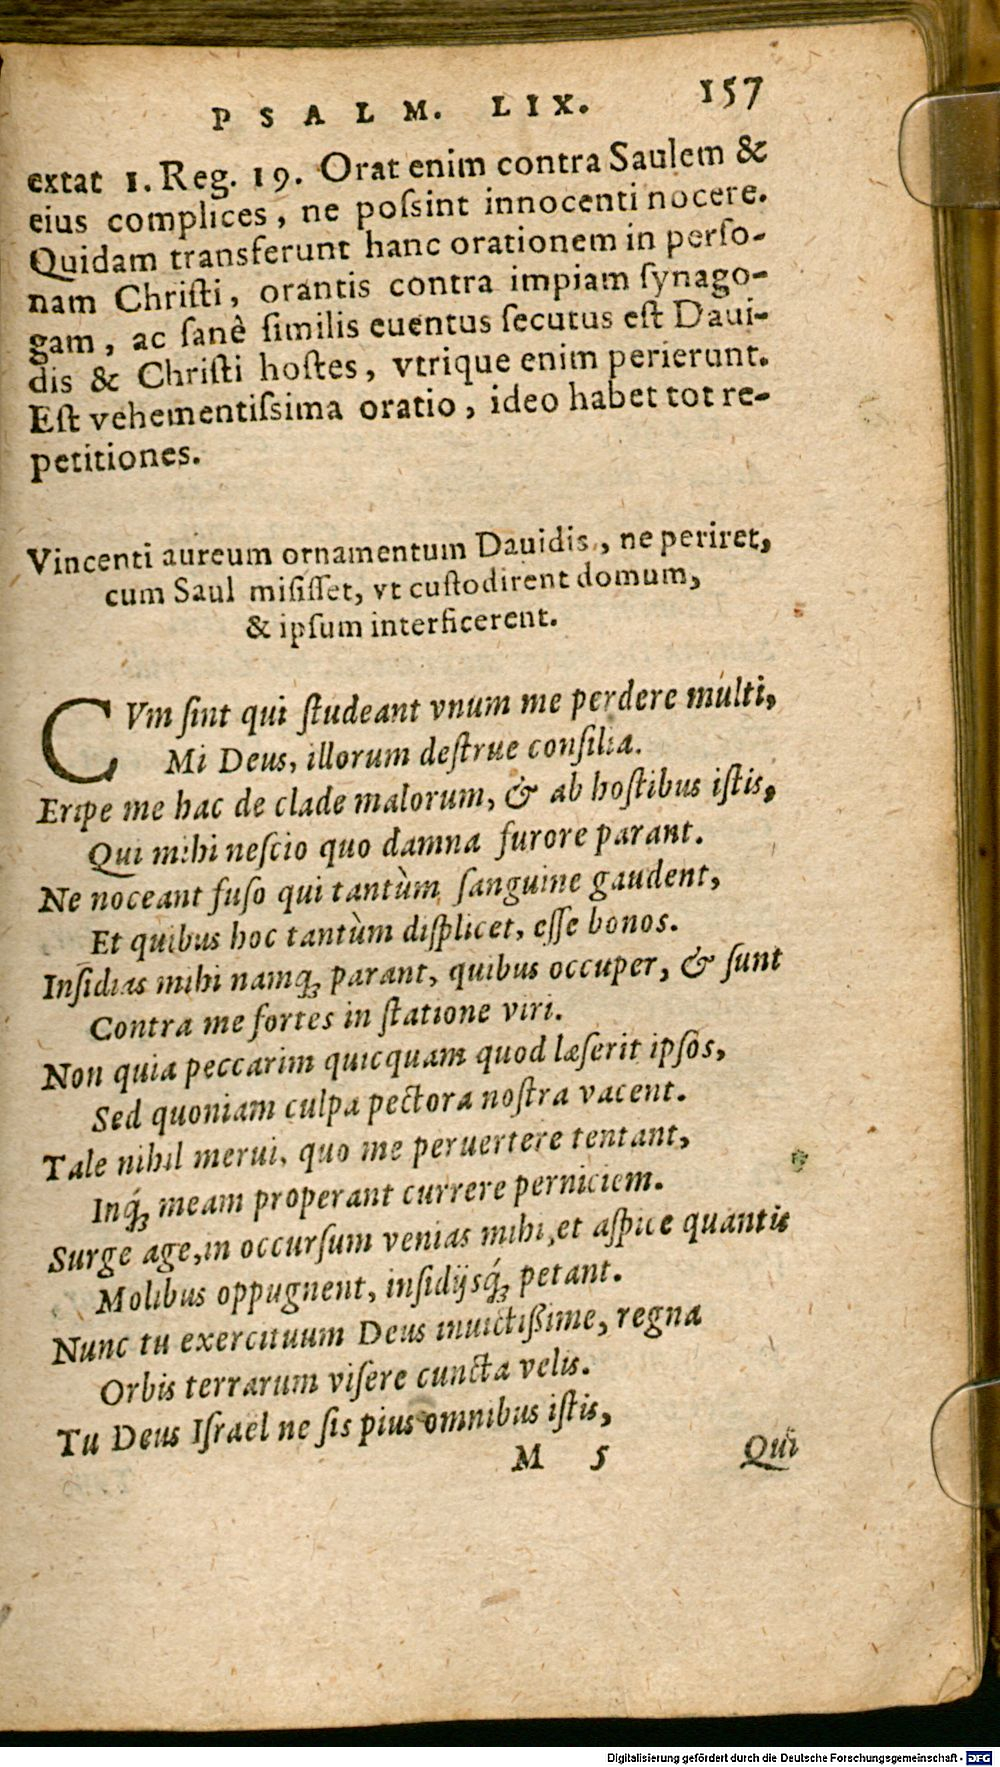 PSALM. LIX. 157
extat 1. Reg. 19. Orat enim contra Saulem &
eius complices, ne poſsint innocenti nocere.
Quidam transferunt hanc orationem in perſo-
nam Chriſti, orantis contra impiam ſynago-
gam, ac ſanè ſimilis euentus ſecutus eſt Daui-
dis & Chriſti hoſtes, vtrique enim perierunt.
Eſt vehementiſsima oratio, ideo habet tot re-
petitiones.
Vincenti aureum ornamentum Dauidis, ne periret,
cum Saul miſiſſet, vt cuſtodirent domum,
& ipſum interficerent.
CVm ſint qui ſtudeant vnum me perdere multi,
Mi Deus, illorum deſtrue conſilia.
Eripe me hac de clade malorum, & ab hoſtibus iſtis,
Qui mihi neſcio quo damna furore parant.
Ne noceant fuſo qui tantùm ſanguine gaudent,
Et quibus hoc tantùm diſplicet, eſſe bonos.
Inſidias mihi namq́ꝫ parant, quibus occuper, & ſunt
Contra me fortes in ſtatione viri.
Non quia peccarim quicquam quod læſerit ipſos,
Sed quoniam culpa pectora noſtra vacent.
Tale nihil merui, quo me peruertere tentant,
Inq́ꝫ meam properant currere perniciem.
Surge age, in occurſum venias mihi, et aſpice quantis
Molibus oppugnent, inſidijsq́ꝫ petant.
Nunc tu exercituum Deus inuictißime, regna
Orbis terrarum viſere cuncta velis.
Tu Deus Iſraël ne ſis pius omnibus iſtis,
M 5 Qui
Digitalisierung gefördert durch die Deutsche Forschungsgemeinschaft - DFG